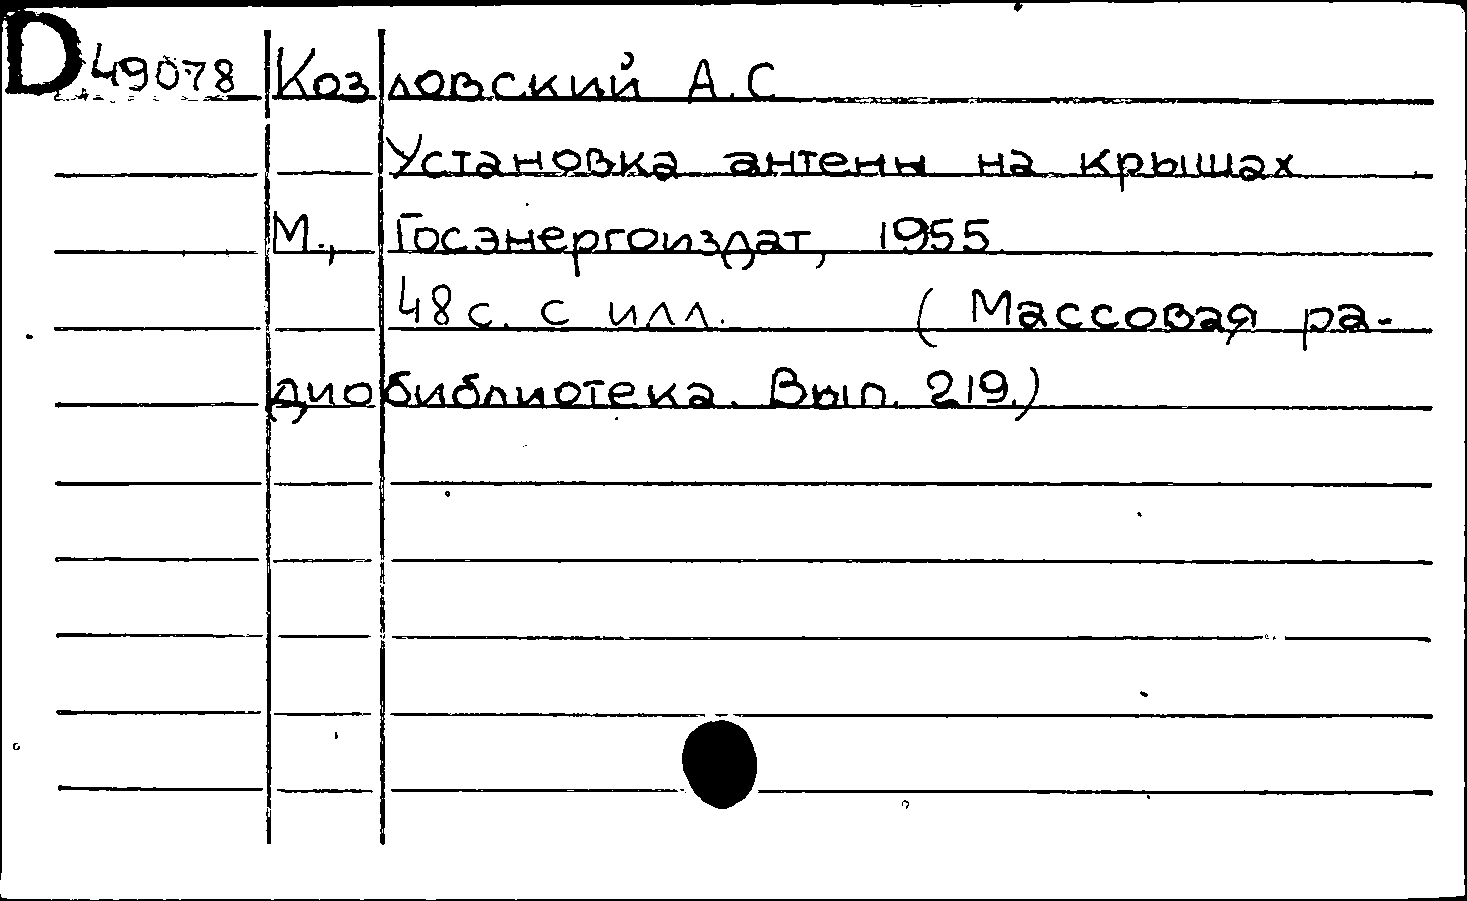 D 49078 Козловский А.С
Установка антенн на крышах
М., Госэнергоиздат, 1955
48 с. с илл. (Массовая ра-
диобиблиотека. Вып. 219.)